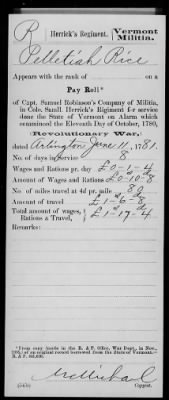 R | Herrick's Regiment. | Vermont Militia.
Pelletiah Rice
Appears with the rank of on a
Pay Roll*
of Capt. Samuel Robinson's Company of Militia,
in Colo. Samll. Herrick's Regiment for service
done the State of Vermont on Alarm which
commenced the Eleventh Day of October, 1780,
(Revolutionary War,)
dated Arlington June 11, 1781.
No. of days in Service 8
Wages and Rations pr. day £0-1-4
Amount of Wages and Rations £0-10-8
No. of miles travel at 4d pr. mile 80
Amount of travel £1-6-8
Total amount of wages, Rations & Travels, £1-17-4
Remarks:
*From copy (made in the R. & P. Office, War Dept., in Nov.,
of an original record borrowed from the State of Vermont.—
R. & P.
McMichael
Copyist.